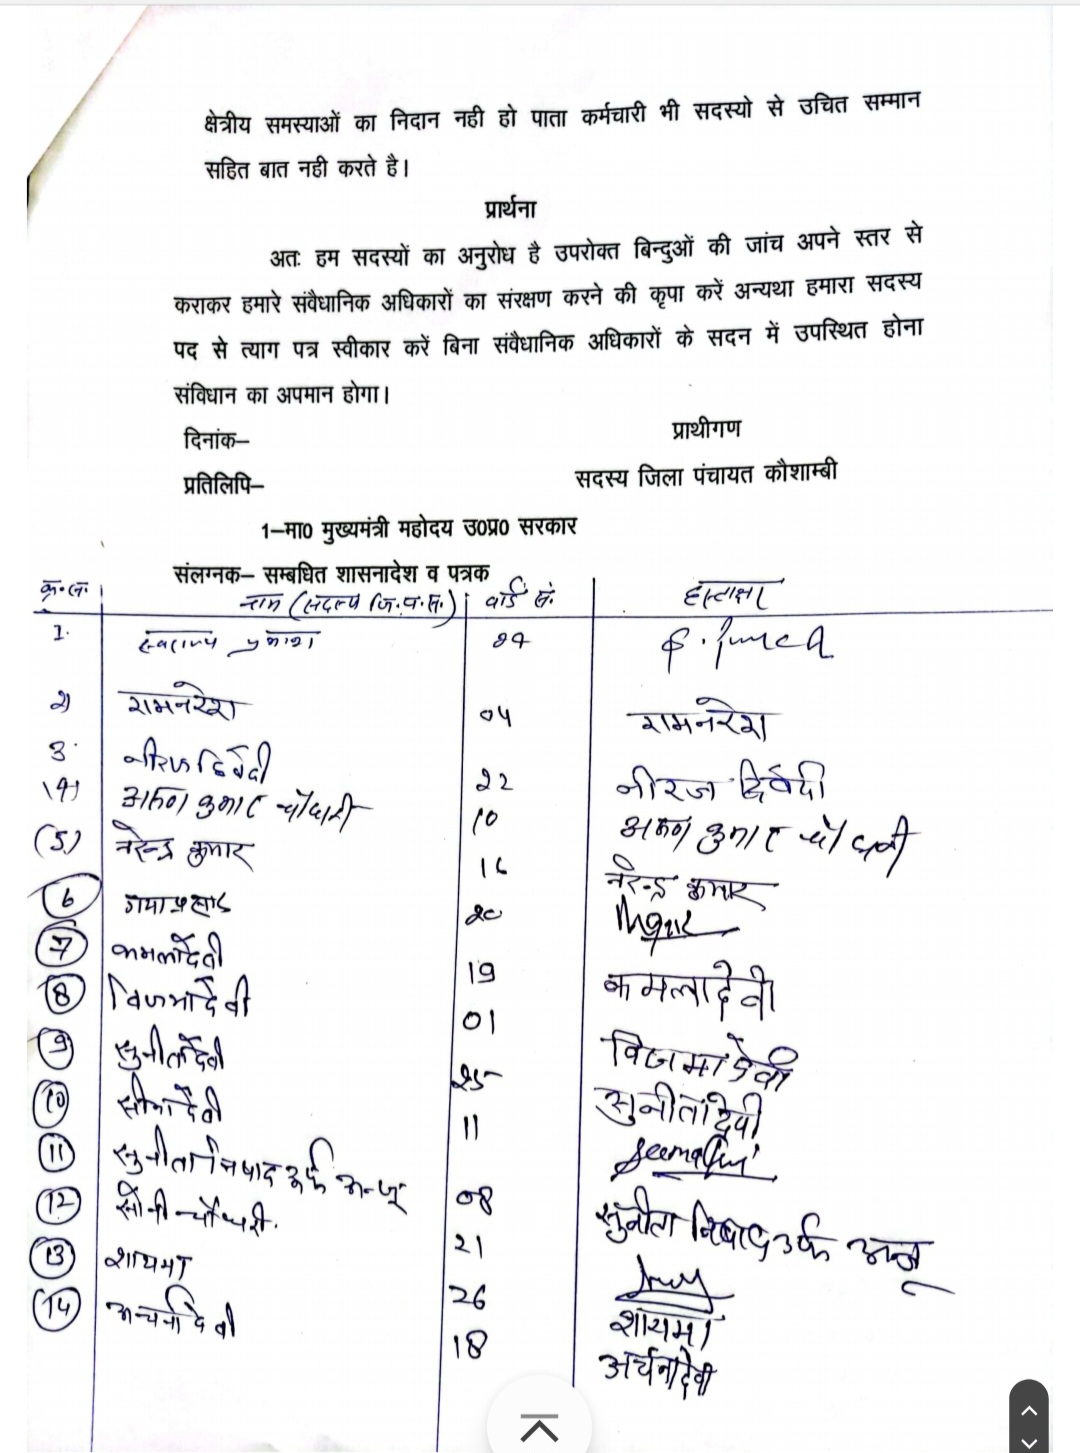 क्षेत्रीय समस्याओं का निदान नही हो पाता कर्मचारी भी सदस्यो से उचित सम्मान
सहित बात नही करते है।
प्रार्थना
अतः हम सदस्यों का अनुरोध है उपरोक्त बिन्दुओं की जांच अपने स्तर से
कराकर हमारे संवैधानिक अधिकारों का संरक्षण करने की कृपा करें अन्यथा हमारा सदस्य
पद से त्याग पत्र स्वीकार करें बिना संवैधानिक अधिकारों के सदन में उपस्थित होना
संविधान का अपमान होगा।
दिनांक– प्राथीगण
प्रतिलिपि– सदस्य जिला पंचायत कौशाम्बी
1–मा0 मुख्यमंत्री महोदय उ0प्र0 सरकार
संलग्नक– सम्बधित शासनादेश व पत्रक
क्र.सं. नाम (सदस्य जि.पं.स.) वार्ड सं. हस्ताक्षर
1. प्रकाश
2) रामनरेश 04 रामनरेश
3. नीरज द्विवेदी 22 नीरज द्विवेदी
(4) अरुण कुमार चौधरी 10 अरुण कुमार चौधरी
(5) नरेन्द्र कुमार 16 नरेन्द्र कुमार
6 गयाप्रसाद 20
7 कमलादेवी 19 कमलादेवी
8 विजमादेवी 01 विजमादेवी
9 सुनीतादेवी 25 सुनीतादेवी
10 सीमादेवी 11
11 सुनीता निषाद उर्फ अन्जू 08 सुनीता निषाद उर्फ अन्जू
12 सोनी चौधरी. 21
13 शायमा 26 शायमा
14 अर्चनादेवी 18 अर्चनादेवी